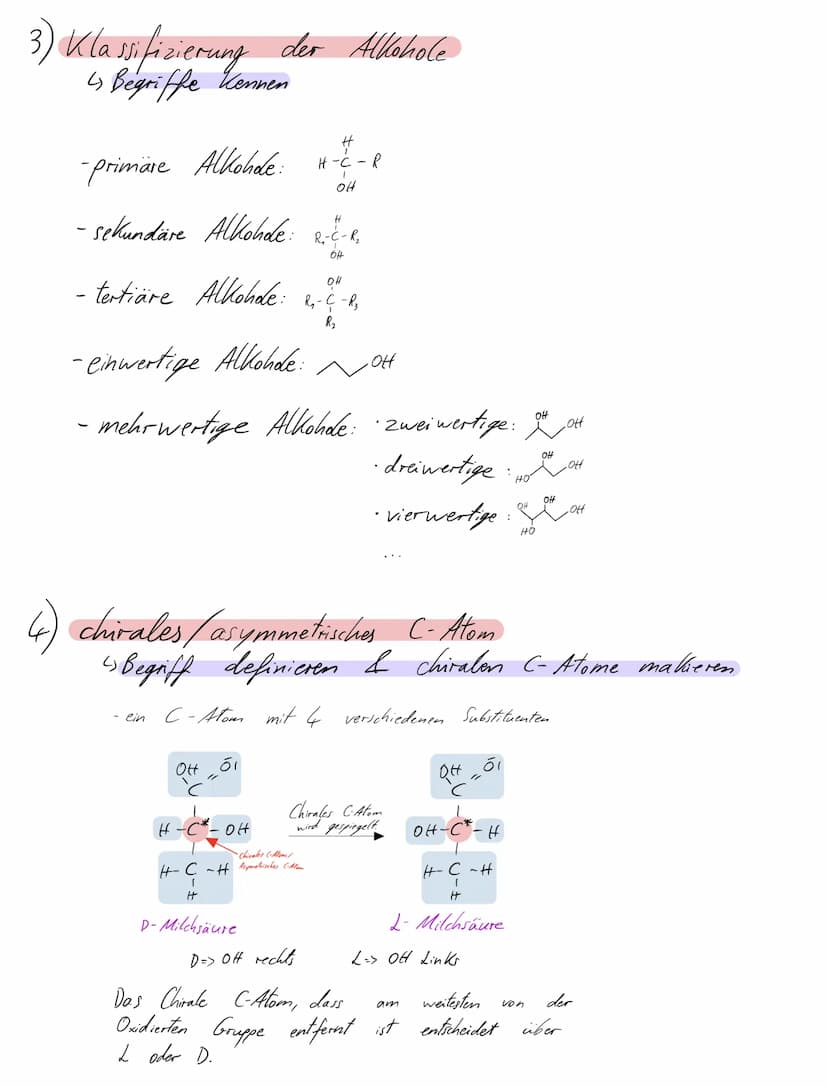 3) Klassifizierung der Alkohole
↳ Begriffe kennen
- primäre Alkohole: H
H - C - R
OH
- sekundäre Alkohole: H
R₁ - C - R₂
OH
- tertiäre Alkohole: OH
R₁ - C - R₃
R₂
- einwertige Alkohole: OH
- mehrwertige Alkohole: · zweiwertige: OH OH
· dreiwertige: HO OH OH
· vierwertige: OH HO OH OH
...
4) chirales/asymmetrisches C-Atom
↳ Begriff definieren & chiralen C-Atome makieren
- ein C-Atom mit 4 verschiedenen Substituenten
OH O
C
H - C* - OH
H - C - H
H
Chirales C-Atom/
Asymmetrisches C-Atom
Chirales C-Atom
wird gespiegelt
OH O
C
OH - C* - H
H - C - H
H
D-Milchsäure
L-Milchsäure
D => OH rechts L => OH Links
Das Chirale C-Atom, dass am weitesten von der
Oxidierten Gruppe entfernt ist entscheidet über
L oder D.